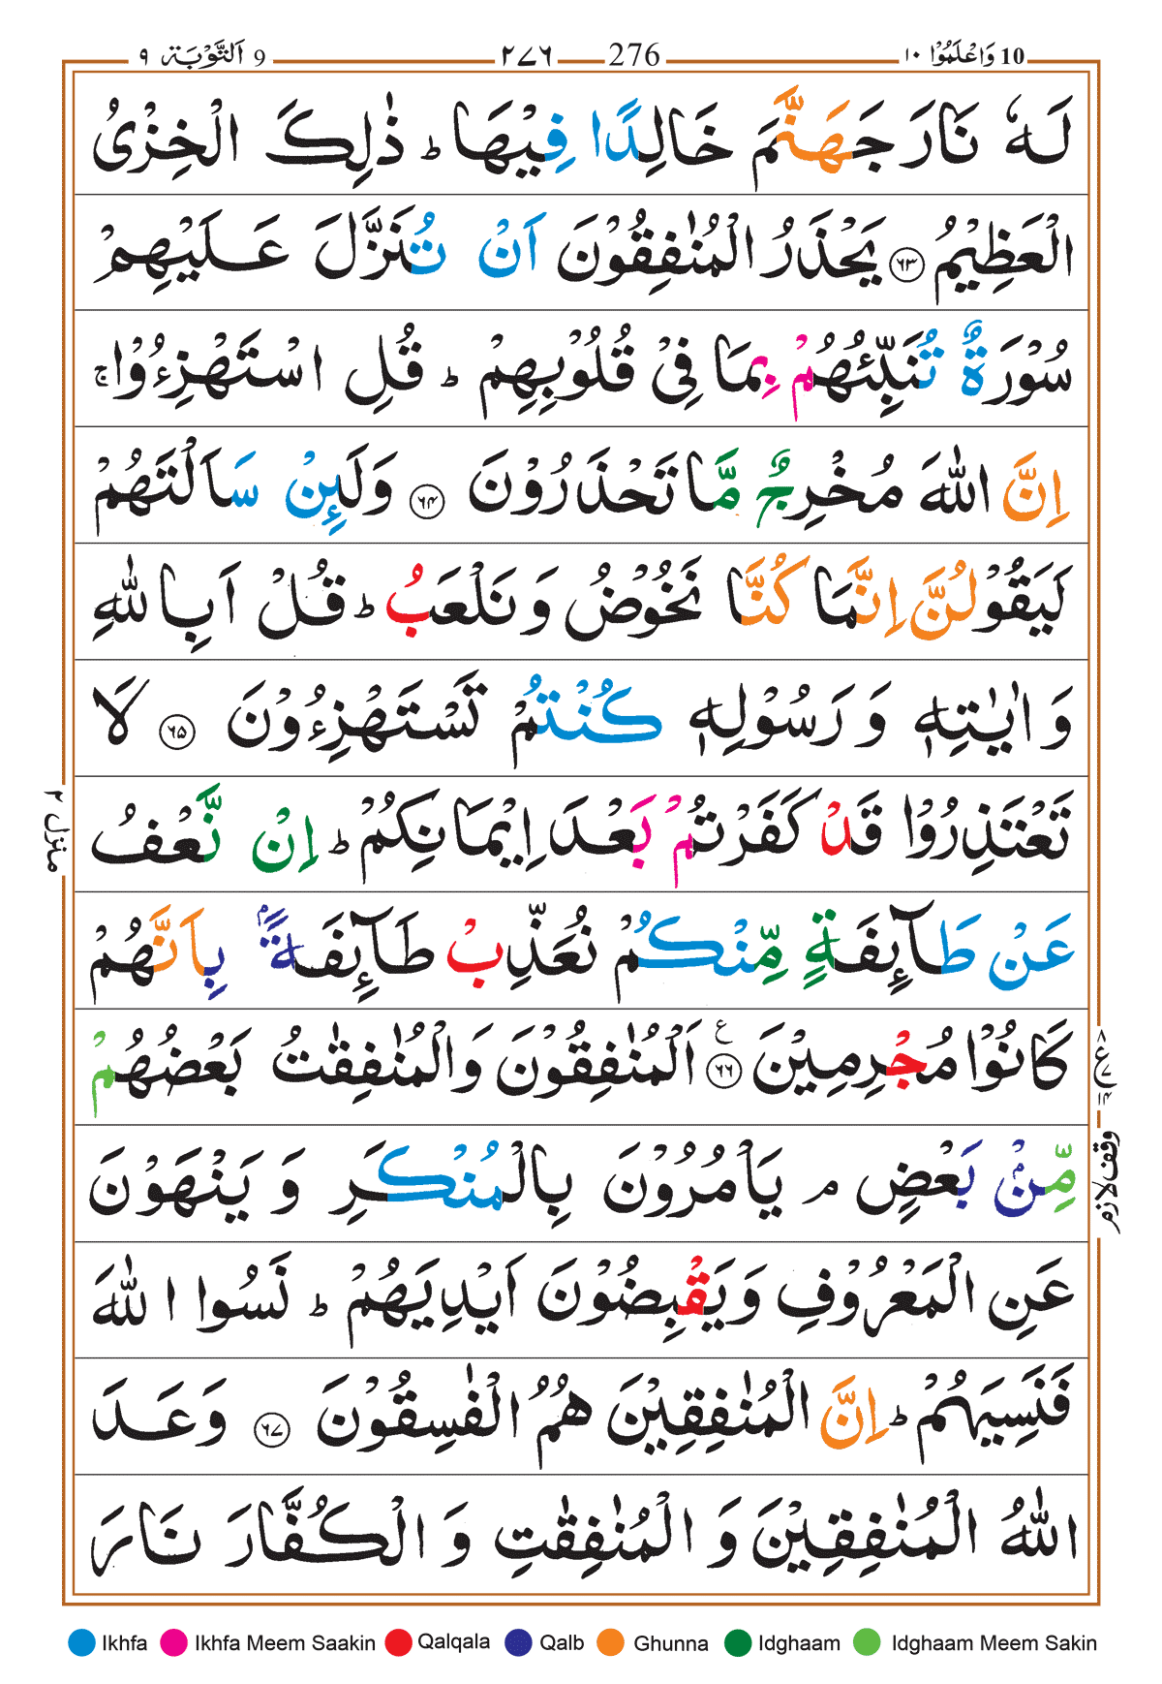 10 وَاعْلَمُوْا ١٠ 276 ٢٧٦ 9 اَلتَّوْبَة ٩
لَهٗ نَارَ جَهَنَّمَ خَالِدًا فِيْهَا ؕ ذٰلِكَ الْخِزْىُ
الْعَظِيْمُ ﴿۶۳﴾ يَحْذَرُ الْمُنٰفِقُوْنَ اَنْ تُنَزَّلَ عَلَيْهِمْ
سُوْرَةٌ تُنَبِّئُهُمْ بِمَا فِىْ قُلُوْبِهِمْ ؕ قُلِ اسْتَهْزِءُوْا ۚ
اِنَّ اللّٰهَ مُخْرِجٌ مَّا تَحْذَرُوْنَ ﴿۶۴﴾ وَلَئِنْ سَاَلْتَهُمْ
لَيَقُوْلُنَّ اِنَّمَا كُنَّا نَخُوْضُ وَنَلْعَبُ ؕ قُلْ اَبِاللّٰهِ
وَاٰيٰتِهٖ وَرَسُوْلِهٖ كُنْتُمْ تَسْتَهْزِءُوْنَ ﴿۶۵﴾ لَا
تَعْتَذِرُوْا قَدْ كَفَرْتُمْ بَعْدَ اِيْمَانِكُمْ ؕ اِنْ نَّعْفُ
عَنْ طَآئِفَةٍ مِّنْكُمْ نُعَذِّبْ طَآئِفَةًۢ بِاَنَّهُمْ
كَانُوْا مُجْرِمِيْنَ ﴿۶۶﴾ ع اَلْمُنٰفِقُوْنَ وَالْمُنٰفِقٰتُ بَعْضُهُمْ
مِّنْۢ بَعْضٍ ۘ يَاْمُرُوْنَ بِالْمُنْكَرِ وَيَنْهَوْنَ
عَنِ الْمَعْرُوْفِ وَيَقْبِضُوْنَ اَيْدِيَهُمْ ؕ نَسُوا اللّٰهَ
فَنَسِيَهُمْ ؕ اِنَّ الْمُنٰفِقِيْنَ هُمُ الْفٰسِقُوْنَ ﴿۶۷﴾ وَعَدَ
اللّٰهُ الْمُنٰفِقِيْنَ وَالْمُنٰفِقٰتِ وَالْكُفَّارَ نَارَ
منزل ٢
٨ ع ٧ ١٤
وقف لازم
Ikhfa Ikhfa Meem Saakin Qalqala Qalb Ghunna Idghaam Idghaam Meem Sakin